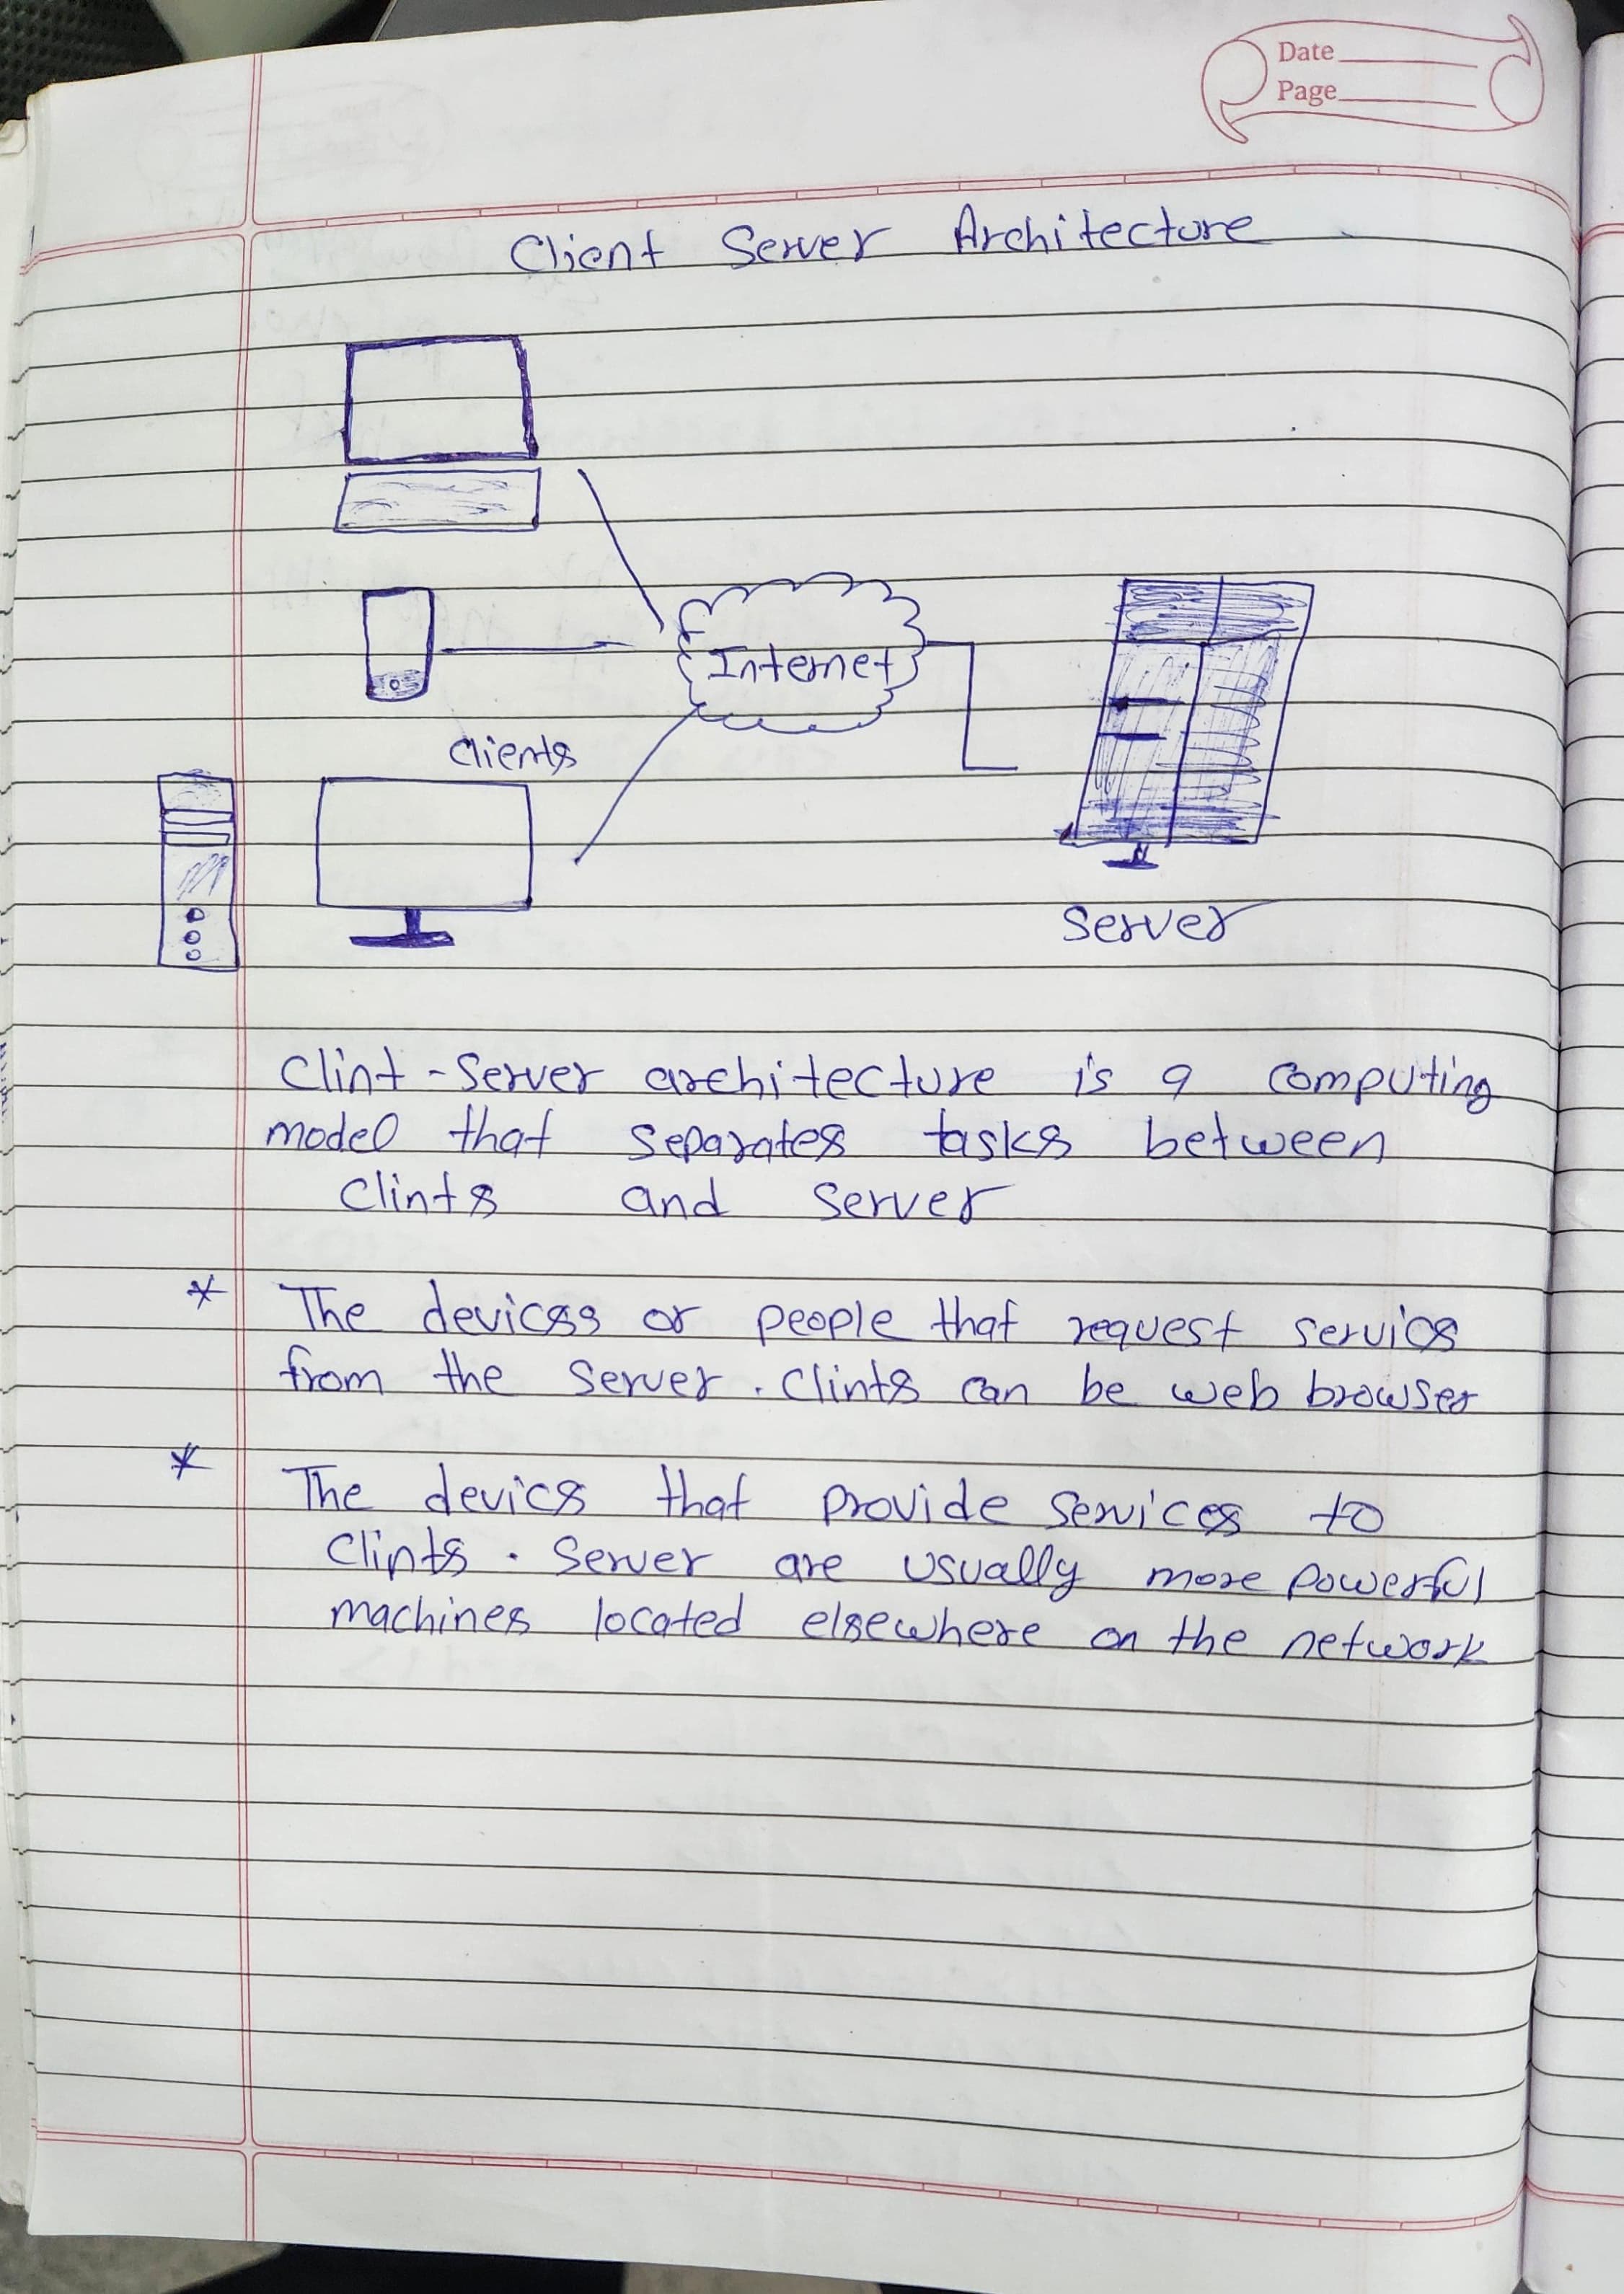 Date
Page
Client Server Architecture
Internet
Clients
Server
Clint-Server architecture is a computing
model that separates tasks between
Clints and Server
* The devicess or people that request servics
from the server. Clints can be web browser
* The devics that provide services to
Clints. Server are usually more powerful
machines located elsewhere on the network